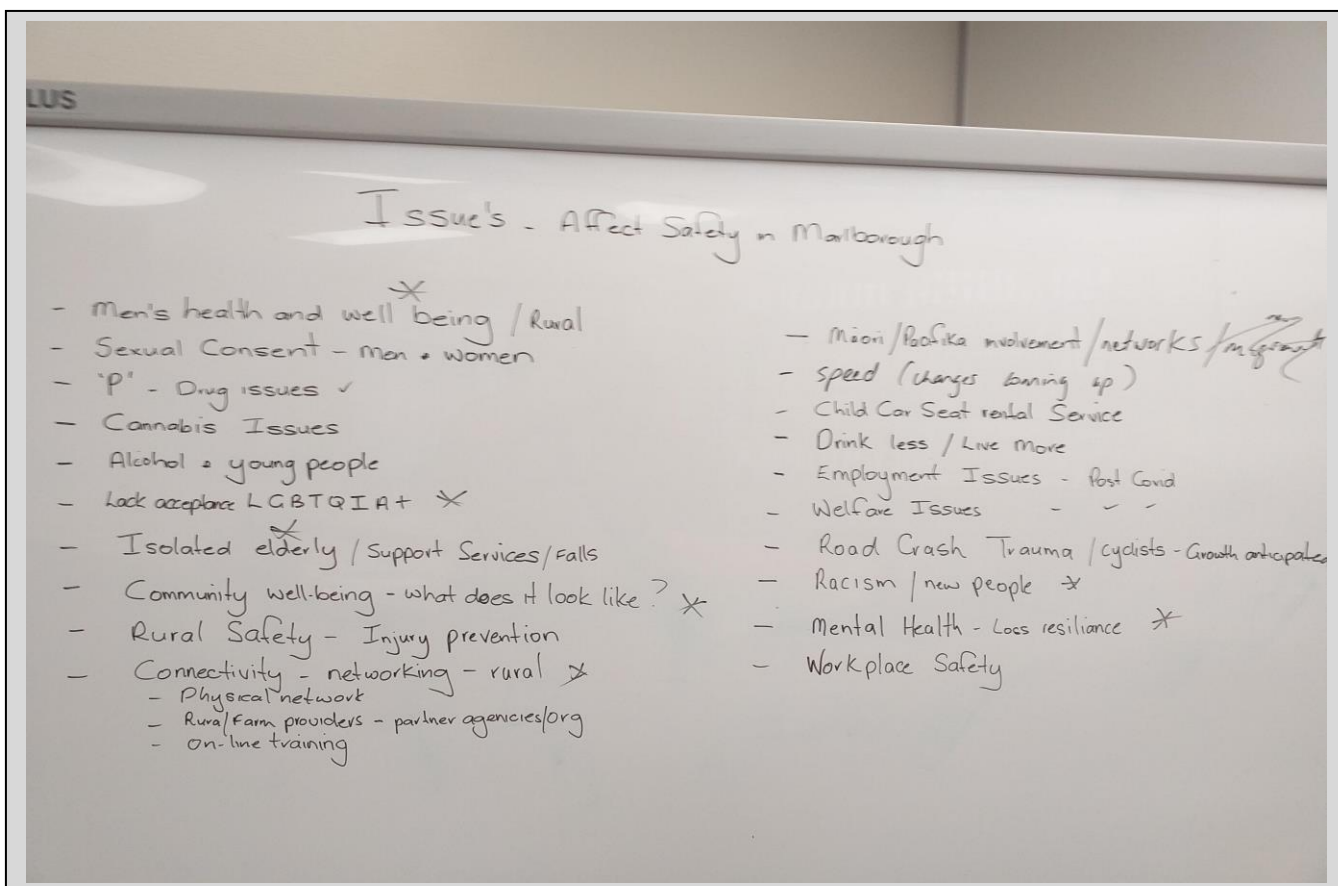 LUS
Issue's - Affect Safety in Marlborough
- Men's health and well being / Rural
- Sexual Consent - men • women
- 'P' - Drug issues ✓
- Cannabis Issues
- Alcohol • young people
- Lack acceptance LGBTQIA+ *
- Isolated elderly / Support Services / Falls
- Community well-being - what does it look like? *
- Rural Safety - Injury prevention
- Connectivity - networking - rural *
- Physical network
- Rural/Farm providers - partner agencies/org
- on-line training
- Māori/Pasifika involvement / networks /
- speed (changes coming up)
- Child Car Seat rental Service
- Drink less / Live more
- Employment Issues - Post Covid
- Welfare Issues - " "
- Road Crash Trauma / cyclists - Growth anticipated
- Racism / new people *
- Mental Health - Loss resiliance *
- Workplace Safety